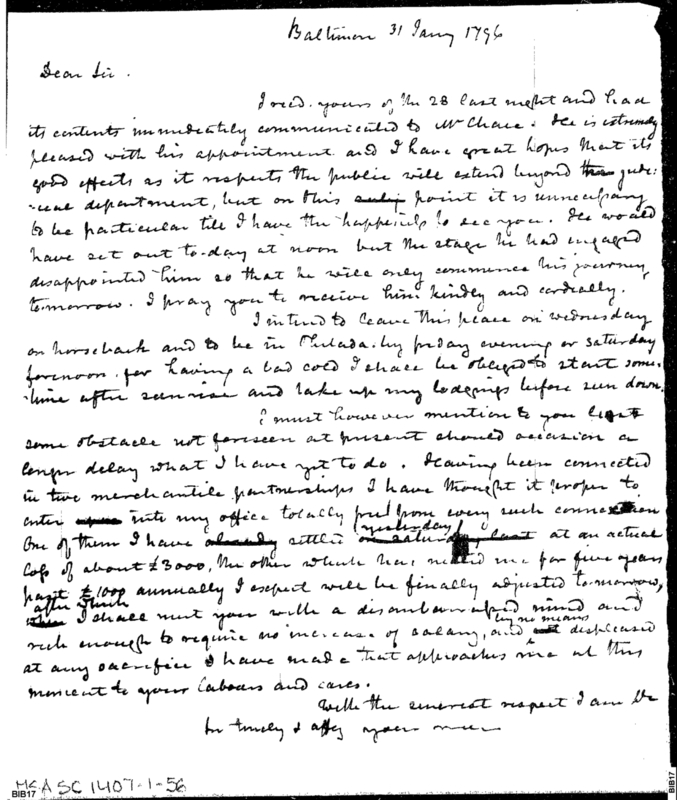 Baltimore 31 Jany 1796
Dear Sir.
I recd. yours of the 28 last night and had
its contents immediately communicated to Mr Chase. He is extremely
pleased with his appointment and I have great hopes that its
good effects as it respects the public will extend beyond the judi:
:cial department, but on this point it is unnecessary
to be particular till I have the happiness to see you. He would
have set out to-day at noon but the stage he had engaged
disappointed him so that he will only commence his journey
to-morrow. I pray you to receive him kindly and cordially.
I intend to leave this place on wednesday
on horseback and to be in Philada. by friday evening or saturday
forenoon. for having a bad cold I shall be obliged to start some-
-time after sunrise and take up my lodgings before sun down.
I must however mention to you lest
some obstacle not foreseen at present should occasion a
longer delay what I have yet to do. Having been connected
in two merchantile partnerships I have thought it proper to
enter into my office totally free from every such connection
One of them I have already settled on saturday last yesterday at an actual
loss of about £3000, the other which has netted me for five years
past £1000 annually I expect will be finally adjusted to-morrow,
after which I shall meet you with a disembarrassed mind and
rich enough to require no increase of salary, and by no means displeased
at any sacrifice I have made that approaches me at this
moment to your labours and cares.
With the sincerest respect I am Dr
Sir truely & affy yours
MSA SC 1407-1-56
BIB17
BIB17